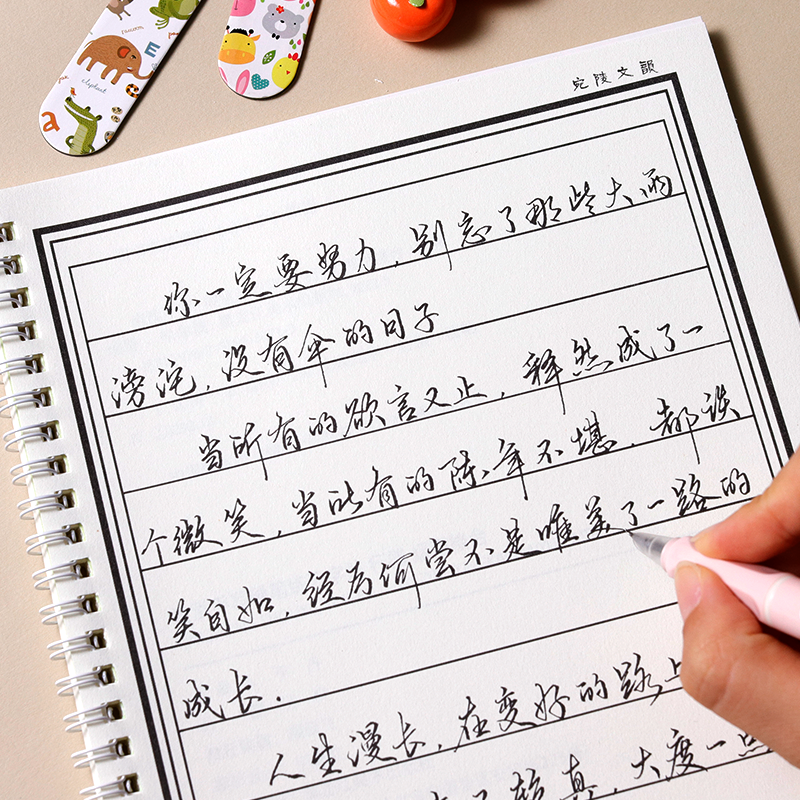 elephant
宛陵文
你一定要努力，别忘了那些大雨
滂沱，没有伞的日子
当所有的欲言又止，释然成了一
个微笑，当所有的陈年不堪，都谈
笑自如，经历何尝不是唯美了一路的
成长.
人生漫长，在变好的路上
较真，大度一点